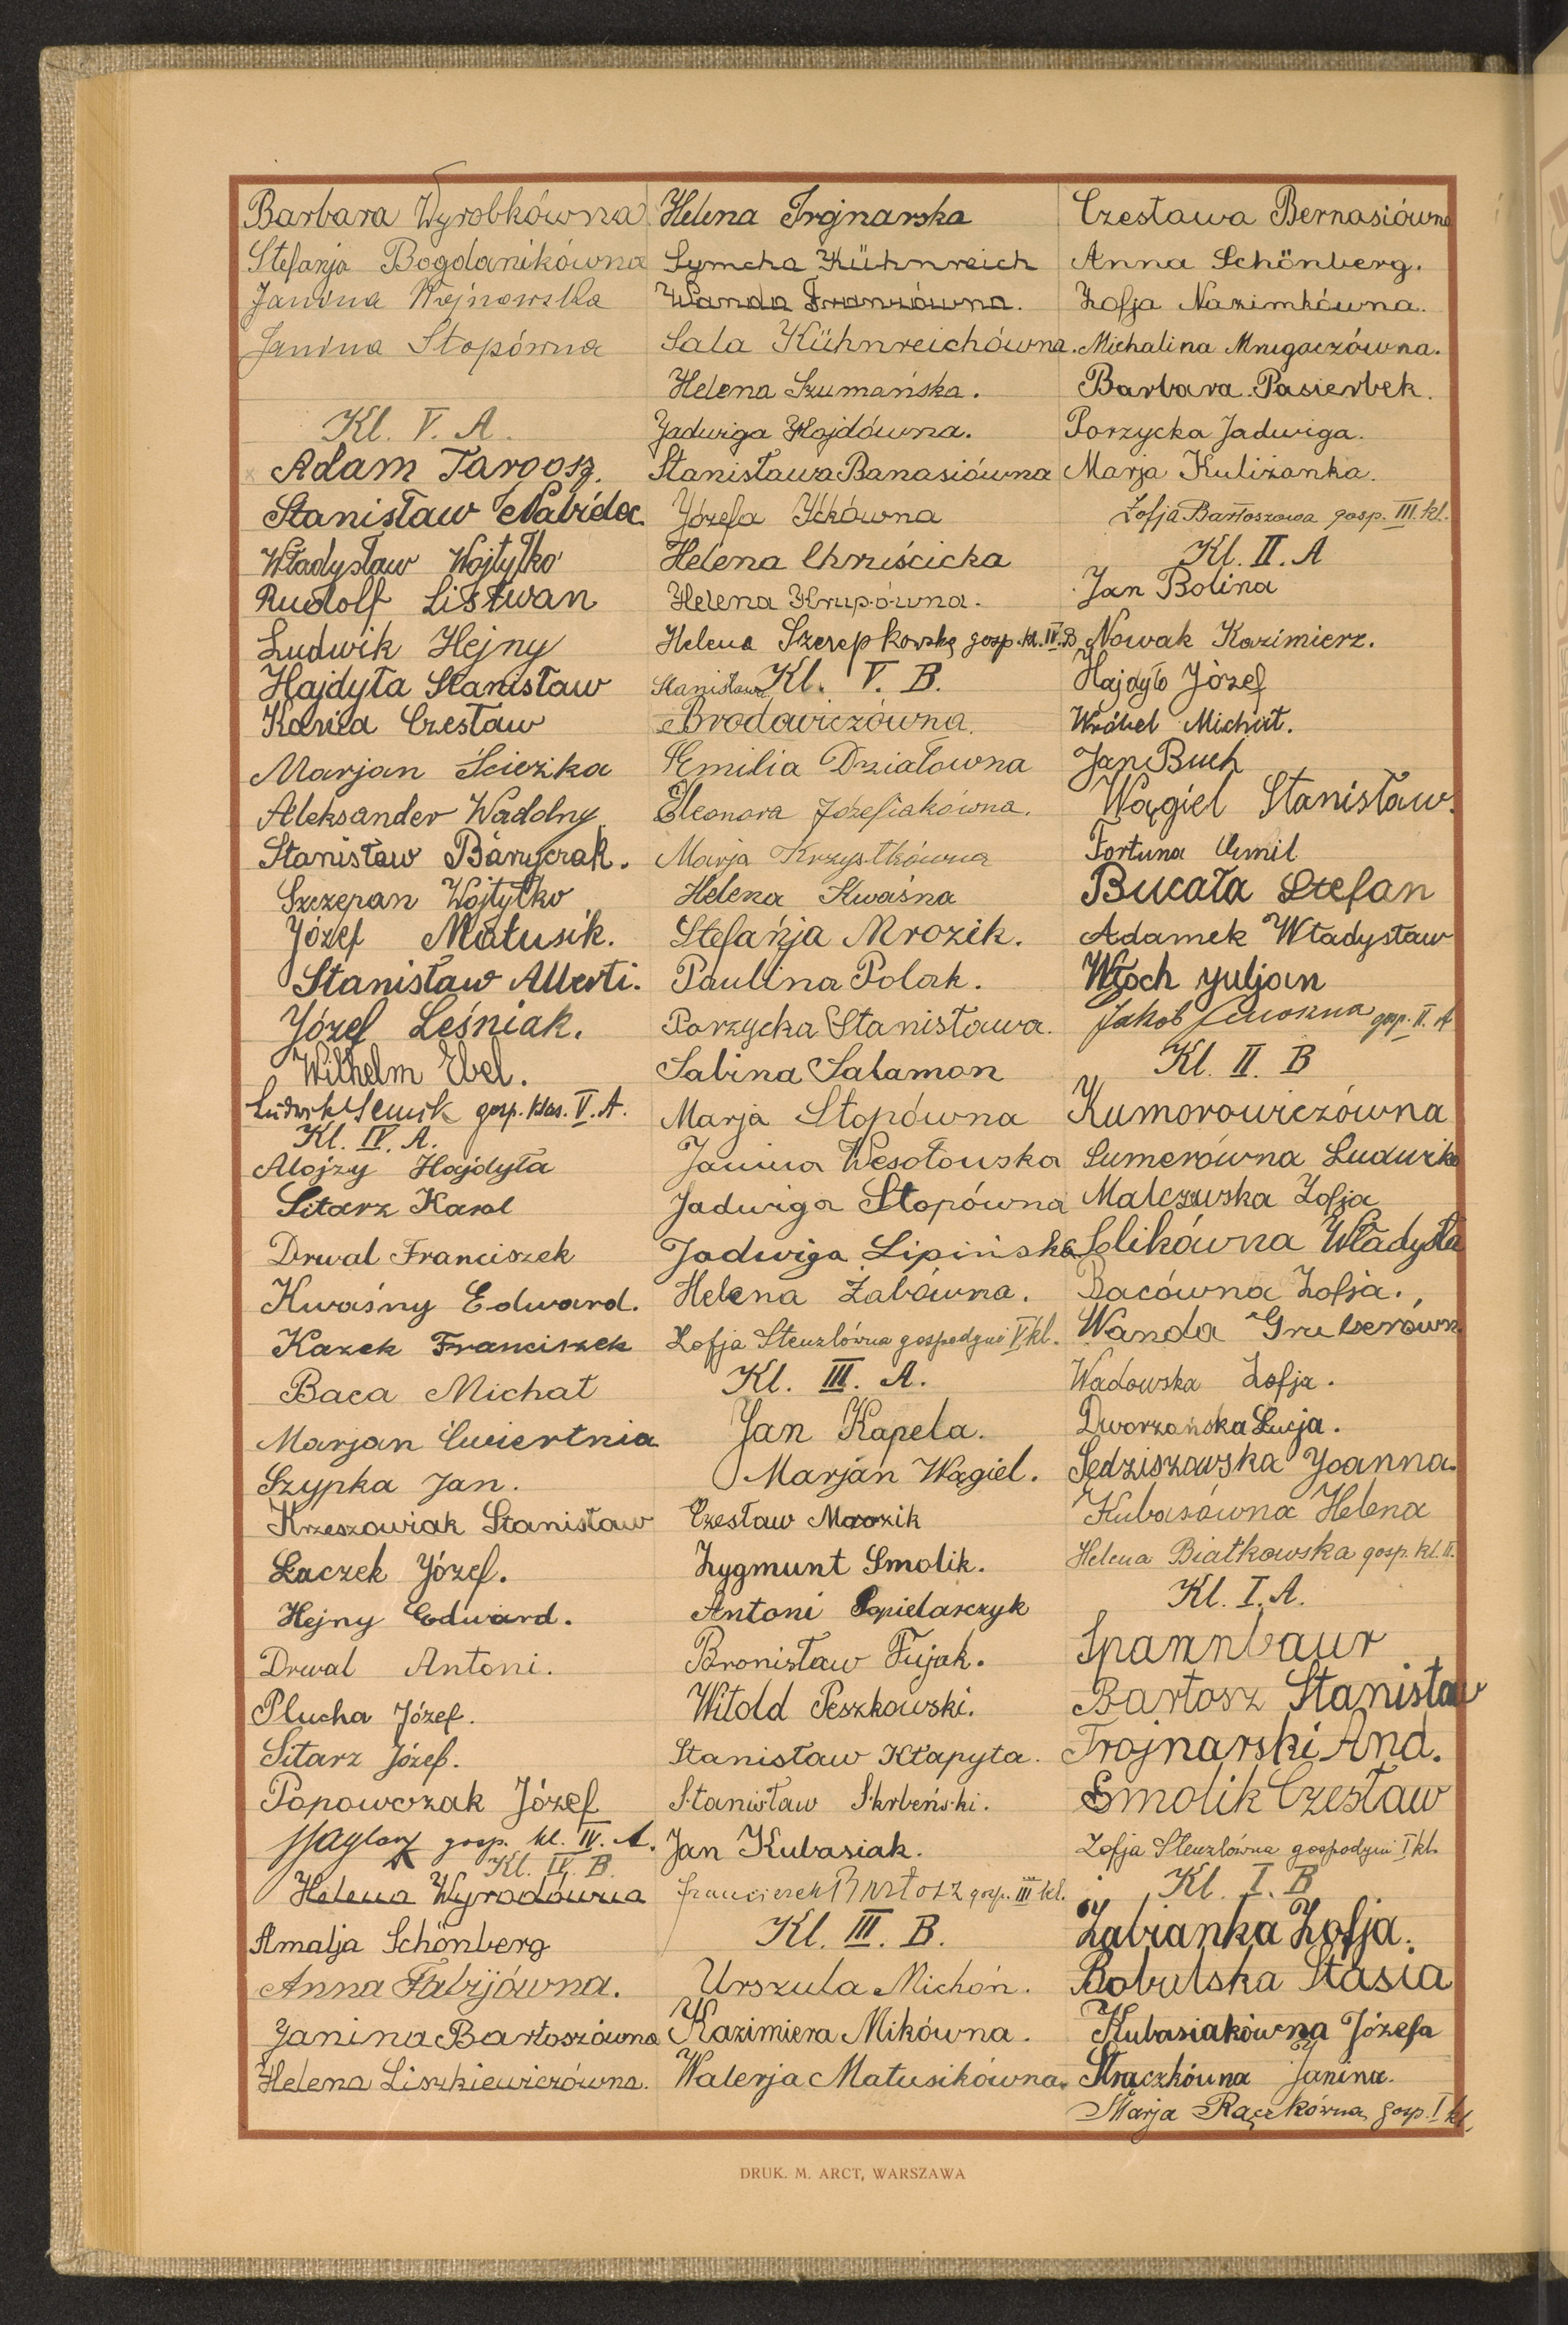 Barbara Wyrobkówna
Stefanja Bogdanikówna
Janina Wojnowska
Janina Stopówna
Kl. V. A.
Adam Taroosz.
Stanisław Nabidec.
Władysław Wojtyłko
Rudolf Listwan
Ludwik Hejny
Hajdyła Stanisław
Kania Czesław
Marjan Ścieżka
Aleksander Wadolny
Stanisław Baryczak.
Szczepan Wojtyłko
Józef Matusik.
Stanisław Alberti.
Józef Leśniak.
Wilhelm Ebel.
Ludwik gosp. klas. V. A.
Kl. IV. A.
Alojzy Hajdyła
Sitarz Karol
Drwal Franciszek
Kwaśny Edward.
Kazek Franciszek
Baca Michał
Marjan Ćwiertnia
Szypka Jan.
Krzeszowiak Stanisław
Łaczek Józef.
Hejny Edward.
Drwal Antoni.
Plucha Józef.
Sitarz Józef.
Popowczak Józef
gosp. kl. IV. A.
Kl. IV. B.
Helena Wyrodówna
Amalja Schönberg
Anna Fabijówna.
Janina Bartoszówna
Helena Liszkiewiczówna.
Helena Trojnarska
Symcha Kühnreich
Wanda Franzówna.
Sala Kühnreichówna.
Helena Szumańska.
Jadwiga Hojdówna.
Stanisława Banasiówna
Józefa Ićkówna
Helena Chruścicka
Helena Krupówna.
Helena Szczepkowska gosp. kl. IV. B.
Kl. V. B.
Stanisława
Brodowiczówna
Emilia Działowna
Eleonora Józefiakówna.
Marja Krzystkówna
Helena Kwaśna
Stefańja Mrozik.
Paulina Polak.
Porzycka Stanisława.
Sabina Salamon
Marja Stopówna
Janina Wesołowska
Jadwiga Stopówna
Jadwiga Lipińska
Helena Żabówna.
Zofja Stenzlówna gospodyni V kl.
Kl. III. A.
Jan Kapela.
Marjan Wągiel.
Czesław Mrozik
Zygmunt Smolik.
Antoni Popielarczyk
Bronisław Fujak.
Witold Peszkowski.
Stanisław Kłapyta.
Stanisław Skrbeński.
Jan Kubasiak.
Franciszek Bartosz gosp. III kl.
Kl. III. B.
Urszula Michoń.
Kazimiera Mikówna.
Walerja Matusikówna.
Czesława Bernasiówna
Anna Schönberg.
Zofja Nazimkówna.
Michalina Mrugaczówna.
Barbara Pasierbek.
Porzycka Jadwiga.
Marja Kuliżanka.
Zofja Bartoszowa gosp. III. kl.
Kl. II. A
Jan Bolina
Nowak Kazimierz.
Hajdyło Józef
Wróbel Michał.
Jan Buch
Wągiel Stanisław.
Fortuna Emil
Bucała Stefan
Adamek Władysław
Włoch Juljan
Jakob gosp. II. A
Kl. II. B
Kumorowiczówna
Sumerówna Ludwika
Malczewska Zofja
Solikówna Władysła
Bacówna Zofja.
Wanda Gruberówn.
Wadowska Zofja.
Dworzańska Łucja.
Sędziszowska Joanna.
Kubasówna Helena
Helena Białkowska gosp. kl. II.
Kl. I. A.
Spannbaur
Bartosz Stanisław
Trojnarski And.
Smolik Czesław
Zofja Stenzlówna gospodyni I kl.
Kl. I. B
Żabianka Zofja.
Bobulska Stasia
Kubasiakówna Józefa
Strączkówna Janina.
Marja Rączkówna gosp. I kl.
DRUK. M. ARCT, WARSZAWA